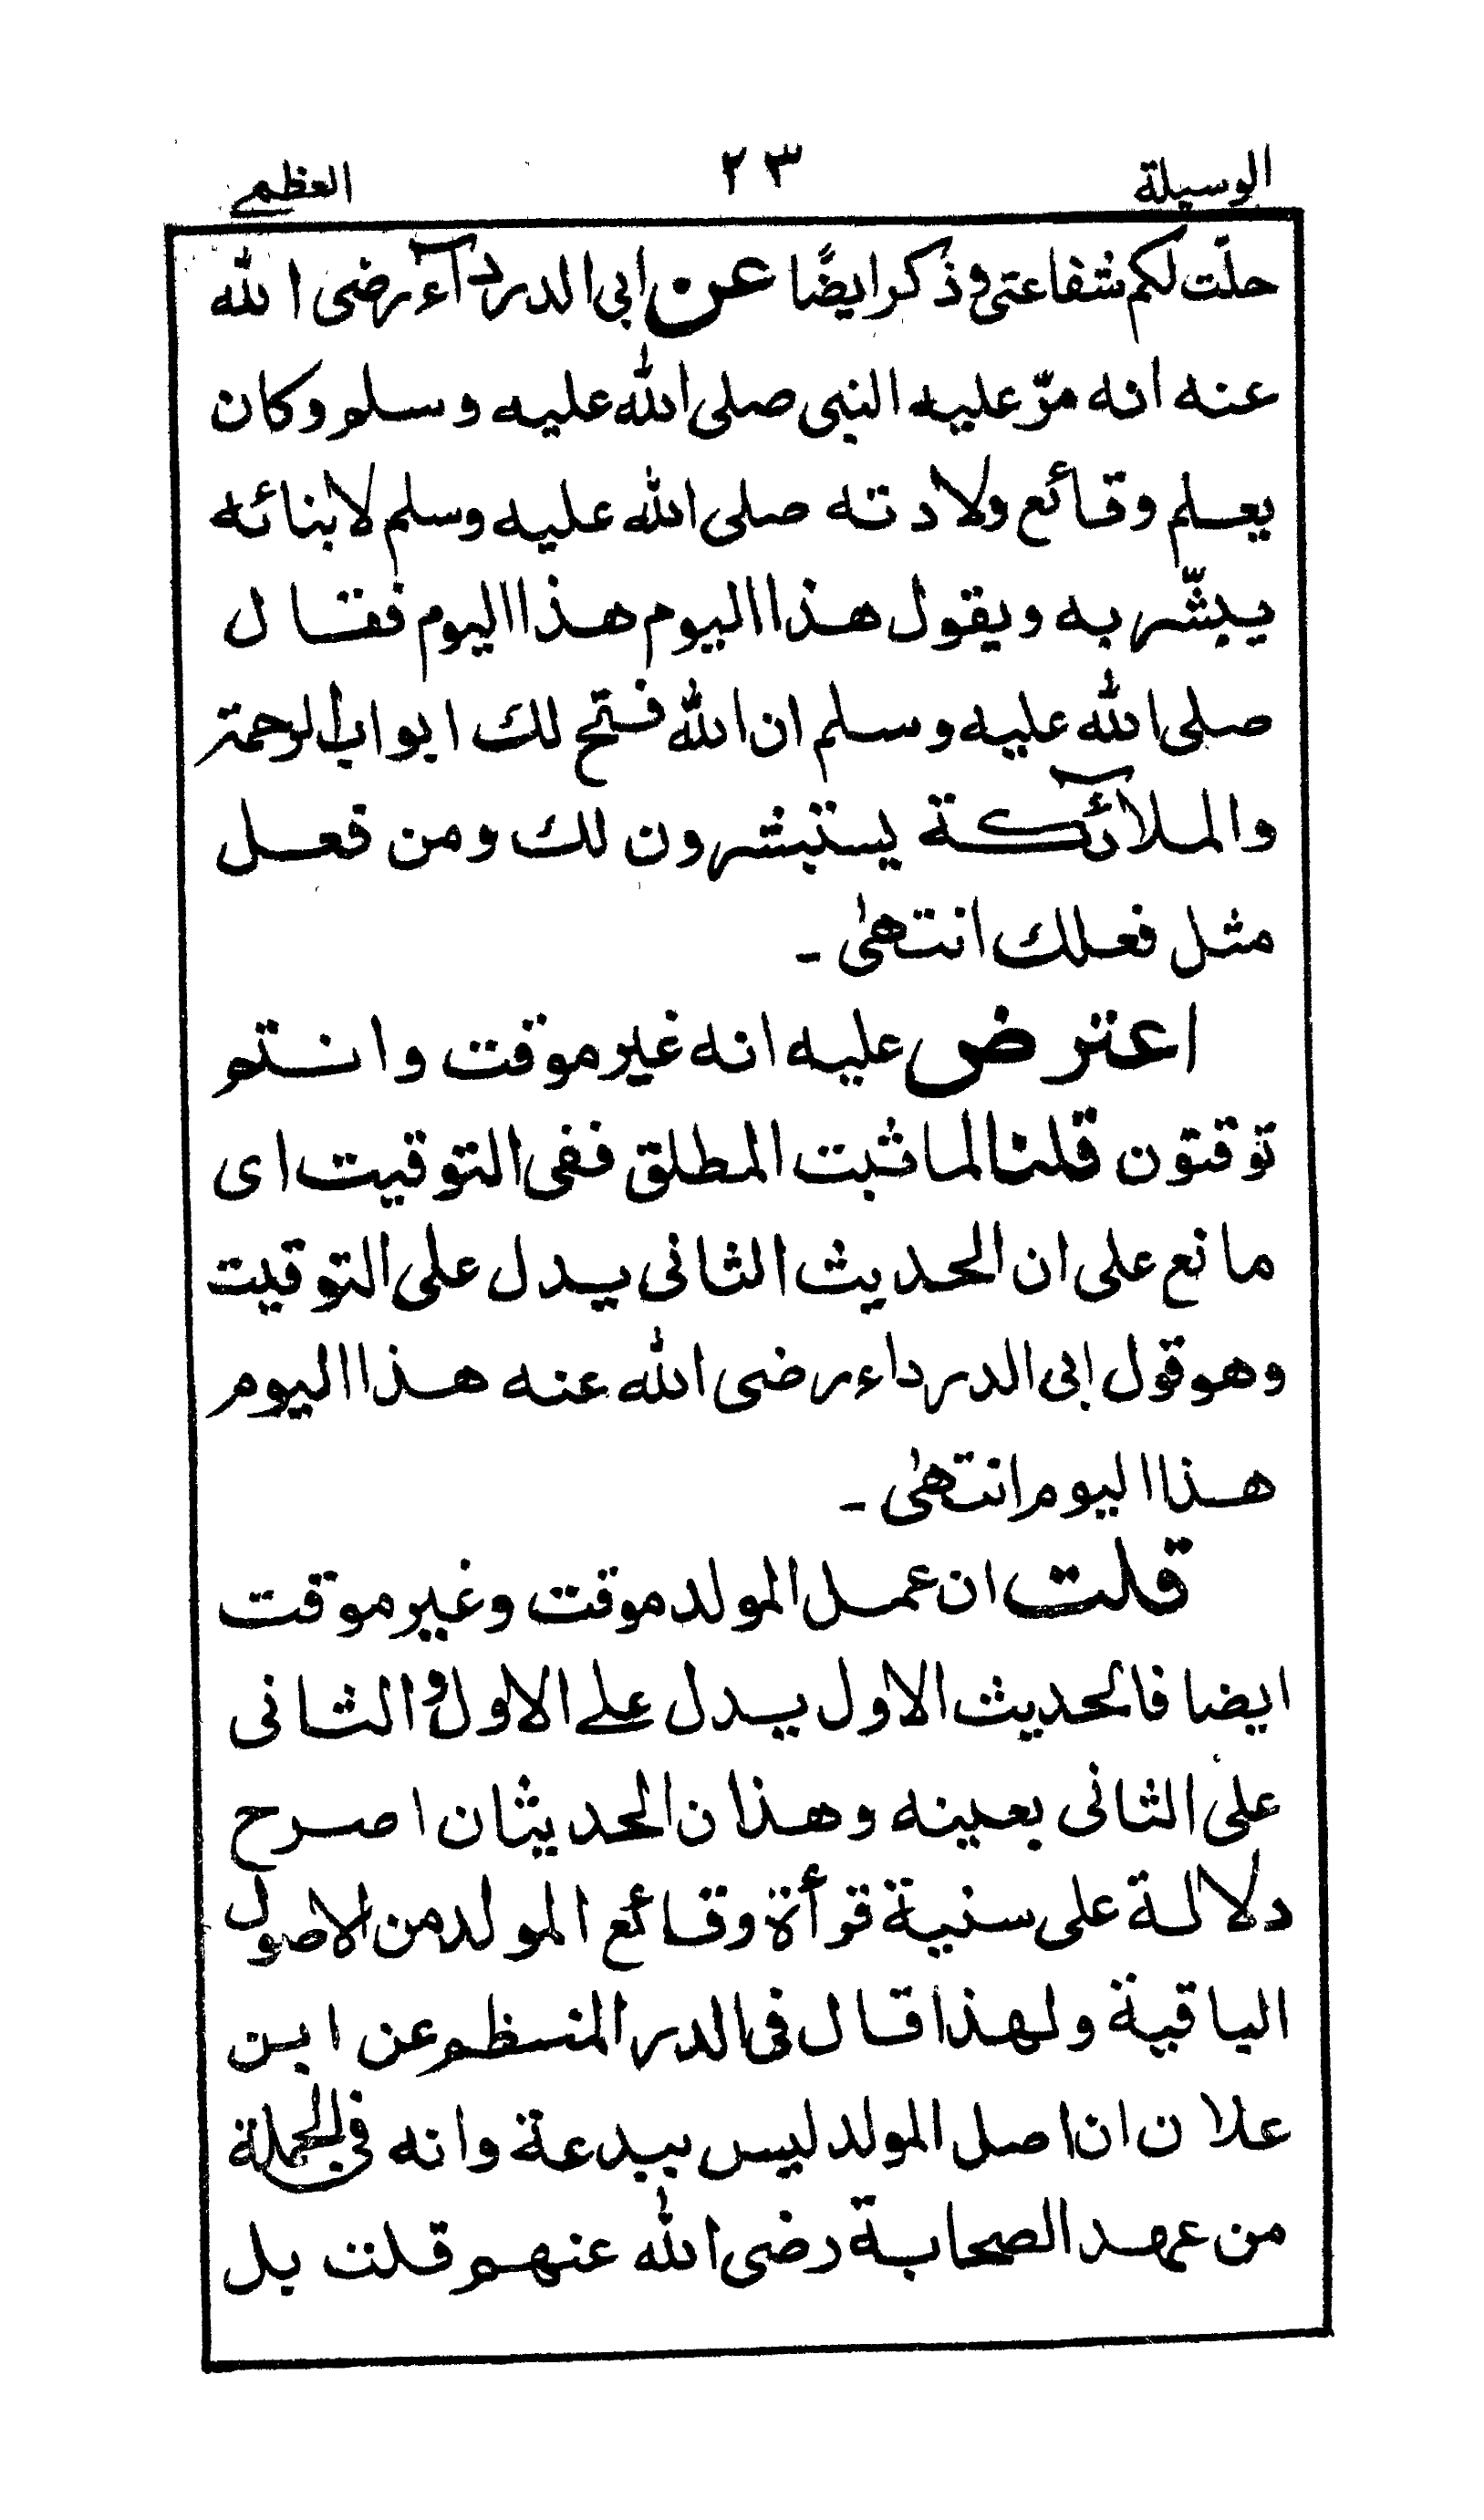 الوسيلة ٢٣ العظمى
حلّت لكم شفاعتى وذكر ايضًا عن ابى الدرداۤء رضى الله
عنه انه مرّ عليه النبى صلى الله عليه وسلم وكان
يعلم وقائع ولادته صلى الله عليه وسلم لابنائه
يبشّر به ويقول هذا اليوم هذا اليوم فقال
صلى الله عليه وسلم ان الله فتح لك ابواب الرحمة
والملاۤئكة يستبشرون لك ومن فعل
مثل فعلك انتهىٰ ـ
اعترض عليه انه غير موقت وانتم
توقتون قلنا لما ثبت المطلق ففى التوقيت اى
مانع على ان الحديث الثانى يدل على التوقيت
وهو قول ابى الدرداء رضى الله عنه هذا اليوم
هذا اليوم انتهىٰ ـ
قلت ان عمل المولد موقت وغير موقت
ايضا فالحديث الاول يدل على الاول والثانى
على الثانى بعينه وهذان الحديثان اصرح
دلالة على سنية قرأة وقائع المولد من الاصول
الباقية ولهذا قال فى الدر المنظم عن ابن
علان ان اصل المولد ليس ببدعة وانه فى الجملة
من عهد الصحابة رضى الله عنهم قلت بل